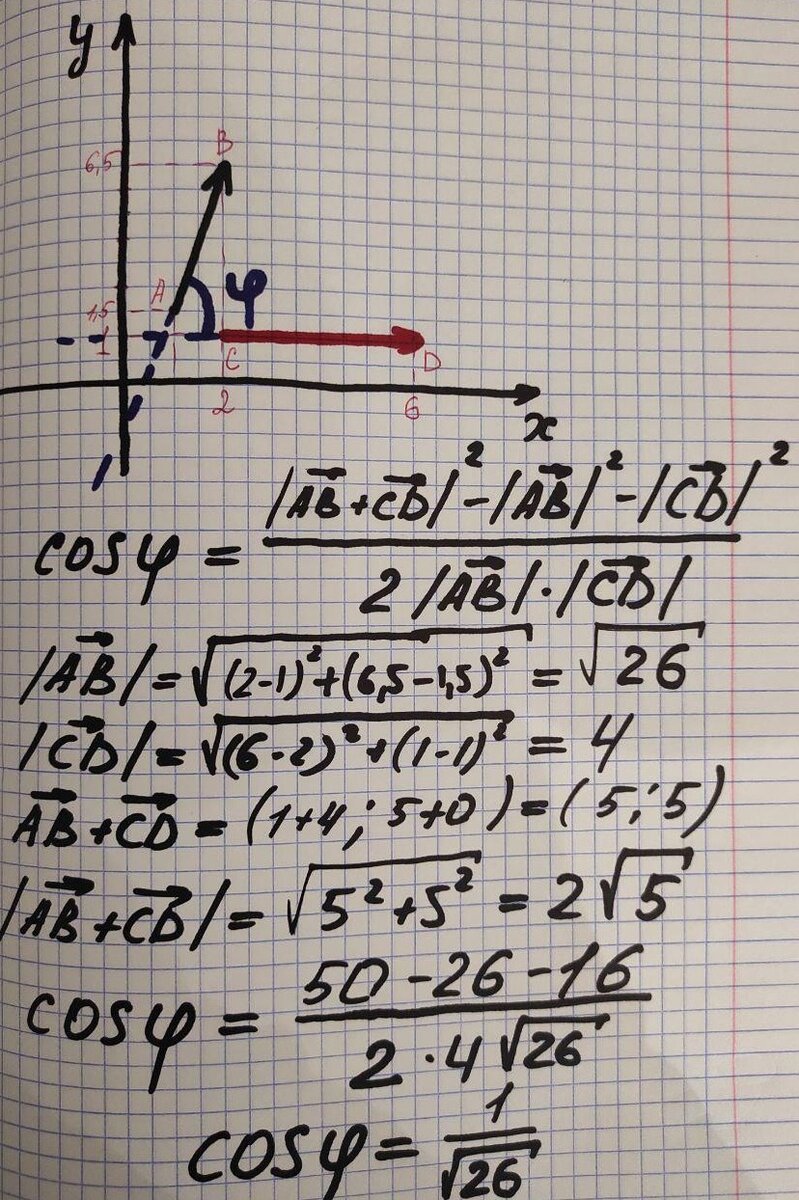 y
B
6,5
A
φ
1,5
1
C
D
2
6
x
cosφ = (|AB⃗ + CD⃗|² - |AB⃗|² - |CD⃗|²) / (2|AB⃗| · |CD⃗|)
|AB⃗| = √((2-1)² + (6,5-1,5)²) = √26
|CD⃗| = √((6-2)² + (1-1)²) = 4
AB⃗ + CD⃗ = (1+4; 5+0) = (5; 5)
|AB⃗ + CD⃗| = √(5² + 5²) = 2√5
cosφ = (50 - 26 - 16) / (2 · 4√26)
cosφ = 1/√26